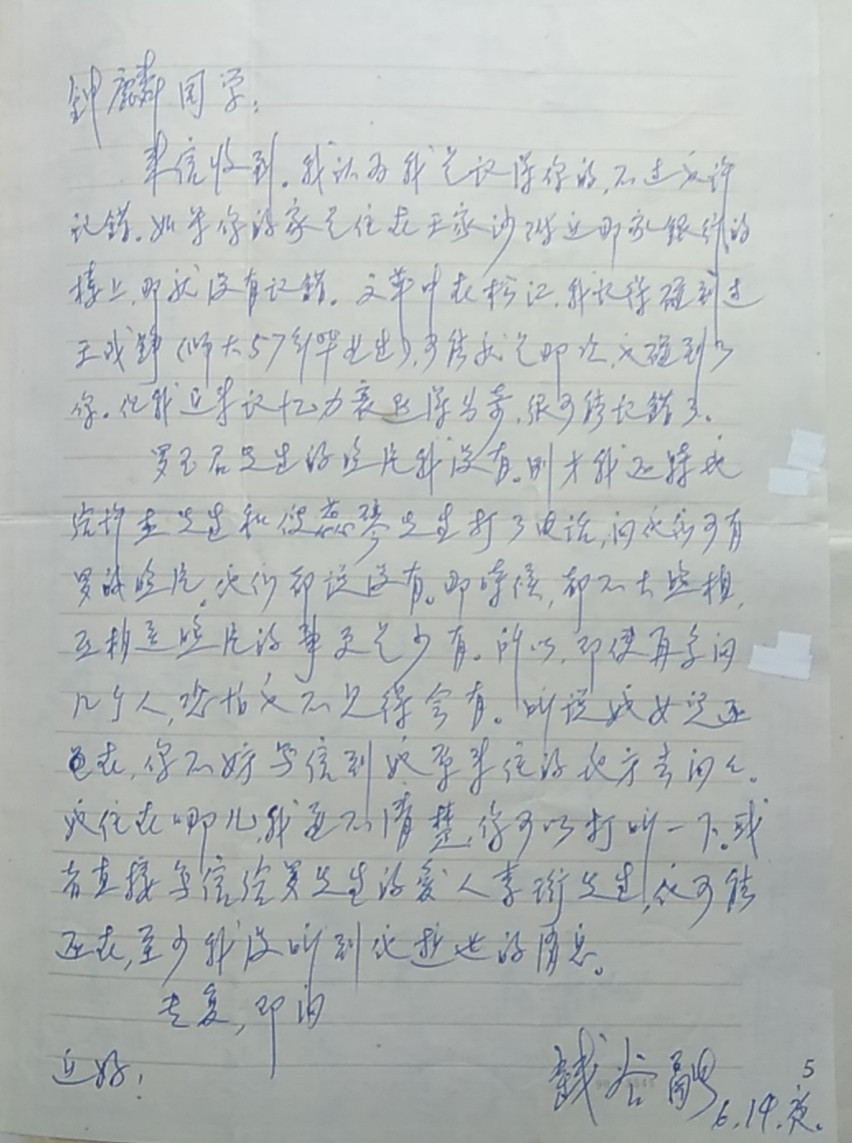 钟麟同学：
来信收到。我认为我是记得你的，不过也许
记错。如果你的家是住在王家沙附近那家银行的
楼上，那就没有记错。文革中在松江，我记得碰到过
王成铮（师大57年毕业生），可能就是那次，也碰到了
你。但我近来记忆力衰退得厉害，很可能记错了。
罗玉君先生的照片我没有。刚才我还特地
给许杰先生和倪蕊琴先生打了电话，问他们可有
罗的照片。他们都说没有。那时候，都不大照相，
互相送照片的事更是少有。所以，即使再多问
几个人，恐怕也不见得会有。听说她女儿还
在，你不妨写信到她原来住的地方去问问。
她住在哪儿，我并不清楚，你可以打听一下。或
者直接写信给罗先生的爱人李珩先生，他可能
还在，至少我没听到他逝世的消息。
专复，即问
近好！
钱谷融
6.14.夜。
5